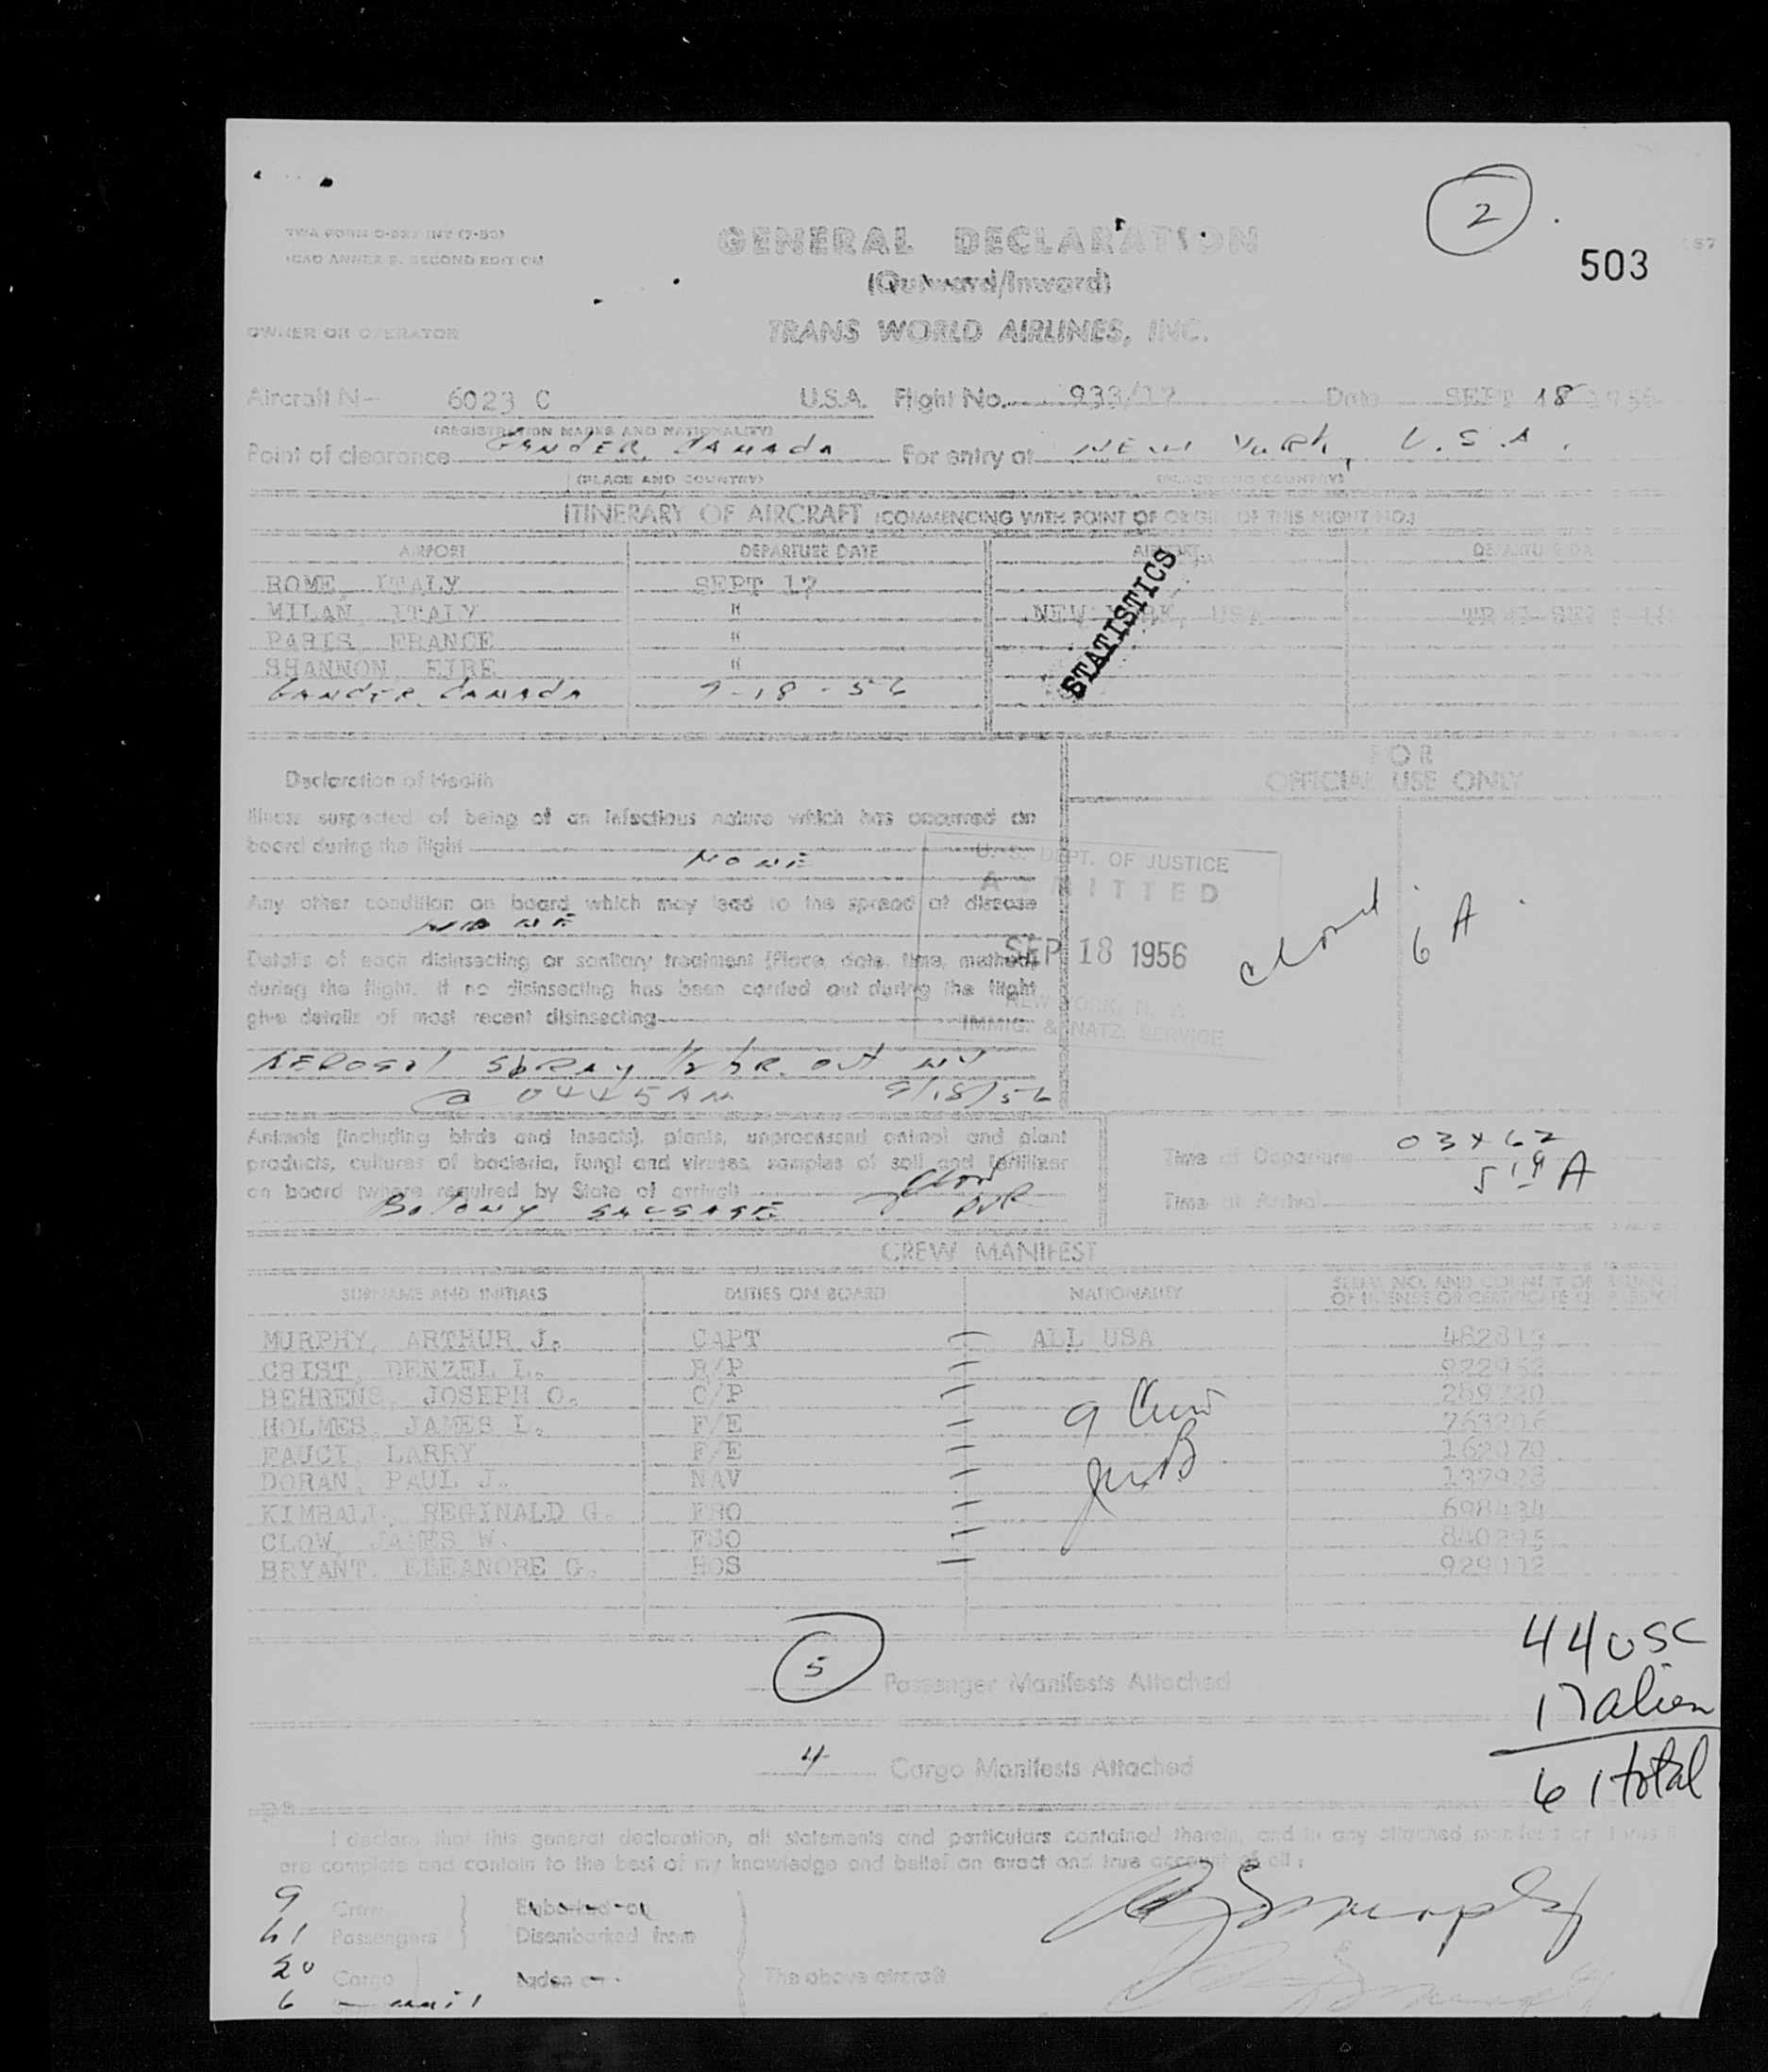 2
503
TWA FORM
ICAO ANNEX 9. SECOND EDITION
GENERAL DECLARATION
(Outward/Inward)
OWNER OR OPERATOR
TRANS WORLD AIRLINES, INC.
Aircraft N- 6023 C U.S.A. Flight No. 933/17 Date SEPT 18 1956
(REGISTRATION MARKS AND NATIONALITY)
Point of clearance GANDER, CANADA For entry at NEW YORK, U.S.A.
(PLACE AND COUNTRY) (PLACE AND COUNTRY)
ITINERARY OF AIRCRAFT (COMMENCING WITH POINT OF ORIGIN OF THIS FLIGHT NO.)
AIRPORT DEPARTURE DATE AIRPORT DEPARTURE DATE
ROME, ITALY SEPT 17
MILAN, ITALY " NEW YORK, USA
PARIS, FRANCE "
SHANNON, EIRE "
GANDER, CANADA 9-18-56
STATISTICS
FOR
OFFICIAL USE ONLY
Declaration of Health
Illness suspected of being of an infectious nature which has occurred on
board during the flight NONE
Any other condition on board which may lead to the spread of disease
NONE
Details of each disinsecting or sanitary treatment (Place, date, time, method)
during the flight. If no disinsecting has been carried out during the flight
give details of most recent disinsecting
AEROSOL SPRAY 1/2 HR. OUT NY
@ 0445 AM 9/18/56
U. S. DEPT. OF JUSTICE
ADMITTED
SEP 18 1956
NEW YORK, N. Y.
IMMIG. & NATZ. SERVICE
6 A
Animals (including birds and insects), plants, unprocessed animal and plant
products, cultures of bacteria, fungi and viruses, samples of soil and fertilizer
on board (where required by State of arrival)
BOLONY SAUSAGE
Time of Departure
Time of Arrival 519 A
CREW MANIFEST
SURNAME AND INITIALS DUTIES ON BOARD NATIONALITY
MURPHY, ARTHUR J. CAPT ALL USA
CRIST, DENZEL L. R/P
BEHRENS, JOSEPH O. C/P
HOLMES, JAMES L. F/E
FAUCI, LARRY F/E
DORAN, PAUL J. NAV
KIMBALL, REGINALD G.
CLOW, JAMES W.
BRYANT, ELEANORE G. HOS
9 Crew
5 Passenger Manifests Attached
4 Cargo Manifests Attached
44 USC
17 alien
61 total
I declare that this general declaration, all statements and particulars contained therein, and in any attached manifest or forms
are complete and contain to the best of my knowledge and belief an exact and true account of all:
9 Crew Embarked on
61 Passengers Disembarked from
20 Cargo Laden on The above aircraft
6 - mail